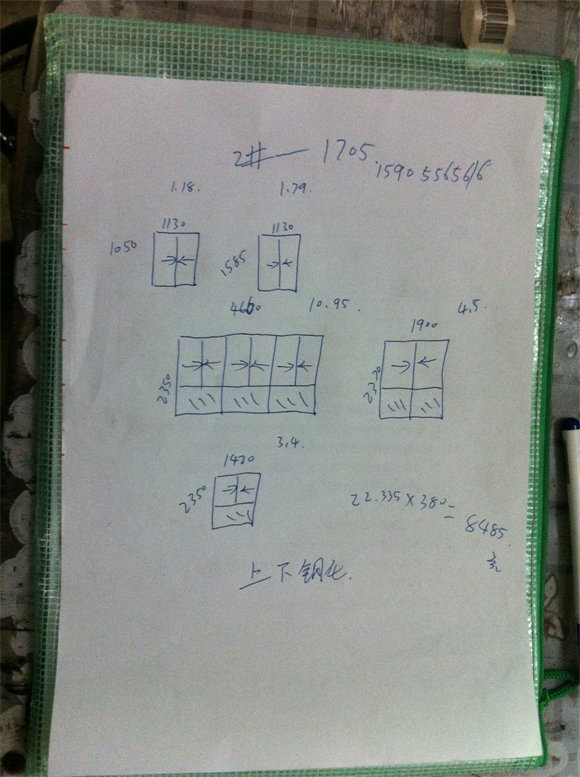 2#—1705.
15905565616
1.18.
1.79.
1130
1050
1130
1585
4660
10.95.
2350
1900
4.5
2370
3.4.
1420
2350
22.335×380=
8485.
上下钢化.